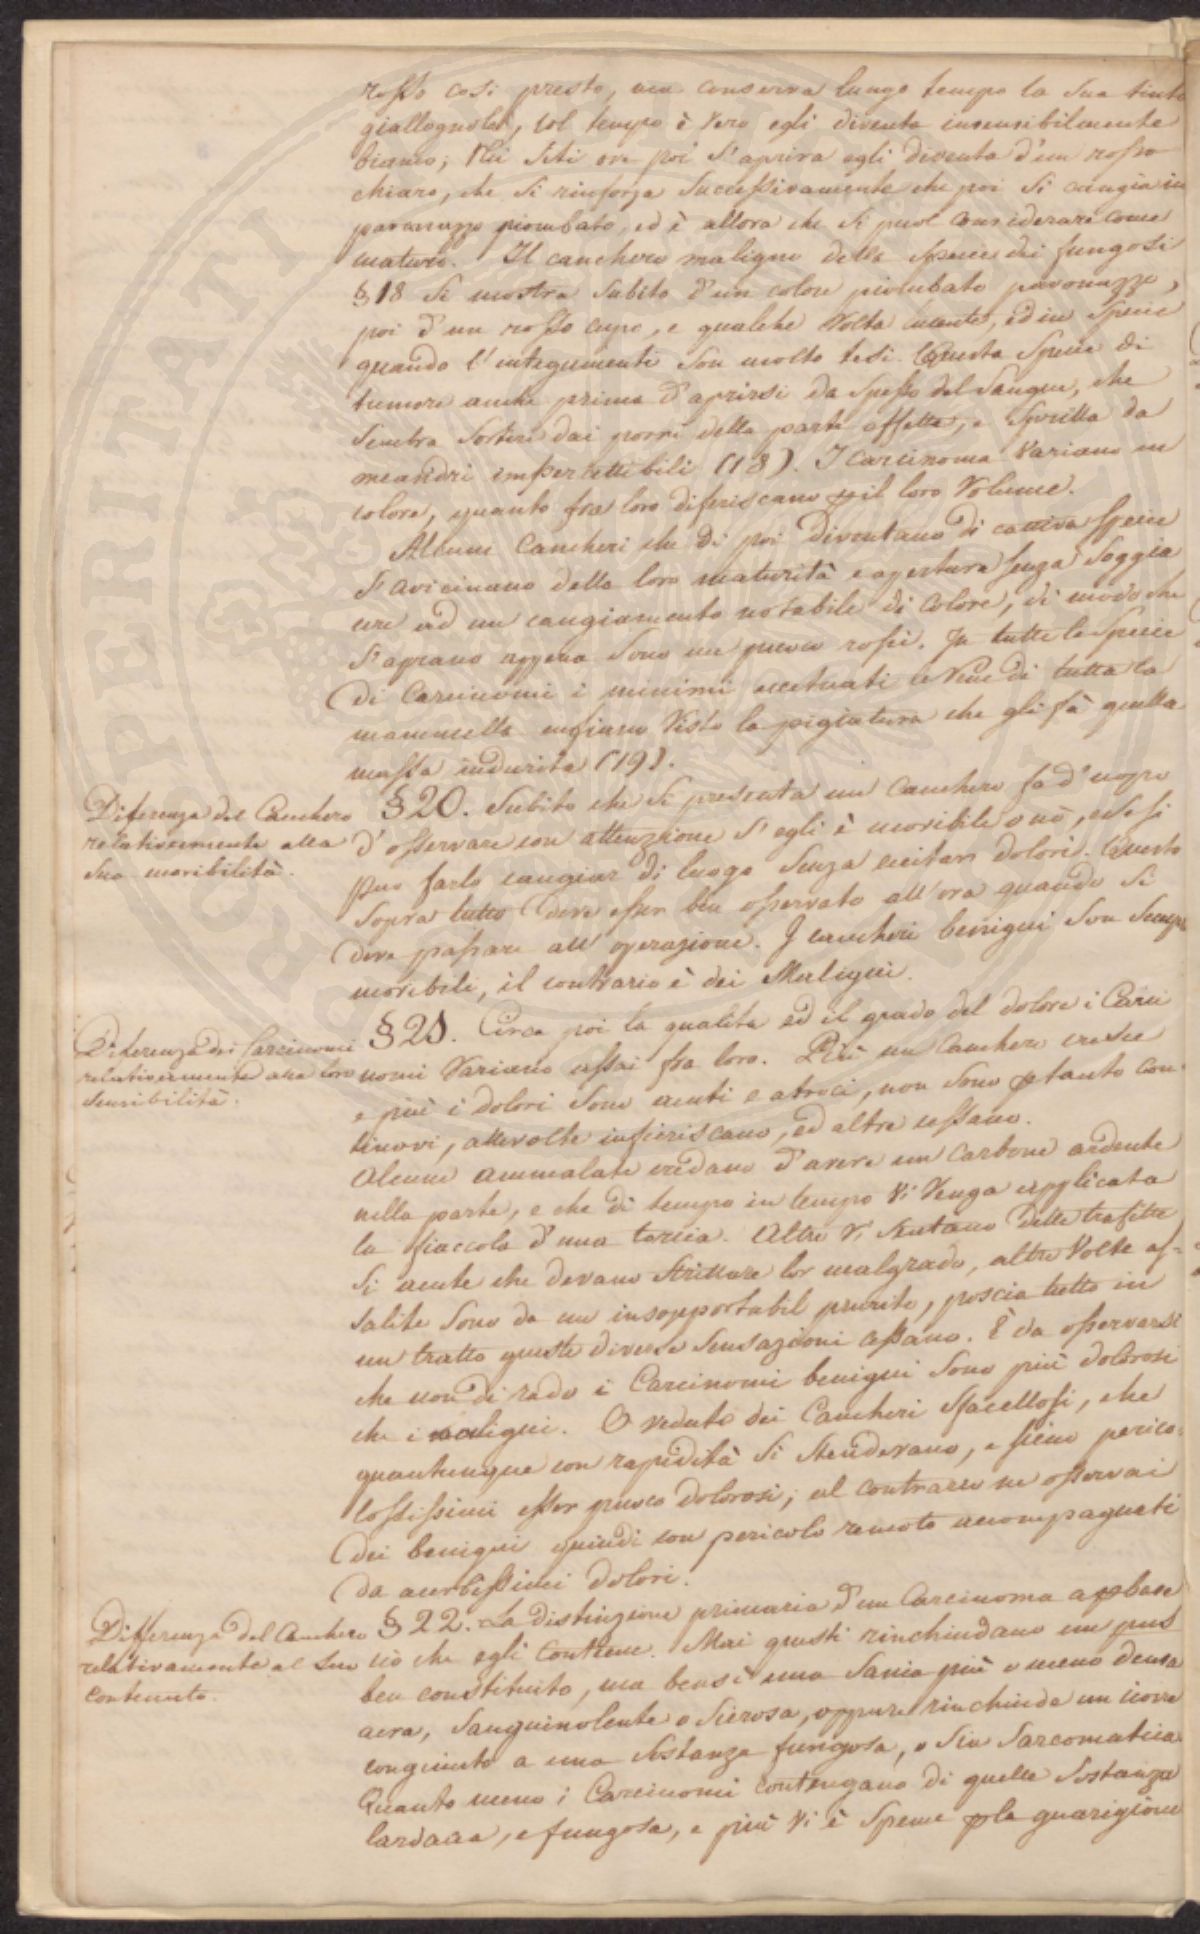 rosso così presto, ma conserva lungo tempo la sua tinta
giallognola, col tempo è vero egli diventa insensibilmente
bianco; Nei siti ove poi s'aprirà egli diventa d'un rosso
chiaro, che si rinforza successivamente che poi si cangia in
pavonazzo piombato, ed è allora che si può considerare come
maturo. Il canchero maligno della specie dei fungosi
§ 18 si mostra subito d'un colore piombato pavonazzo,
poi d'un rosso cupo, e qualche Volta lucente, ed in specie
quando l'integumenti son molto tesi. Questa specie di
tumore anche prima d'aprirsi da spesso del Sangue, che
sembra sortire dai porri della parte affetta, e sprilla da
meandri impercettibili (18). I carcinoma Variano in
colore, quanto fra loro diferiscano p il loro Volume.
Alcuni Cancheri che di poi diventano di cattiva specie
s'avicinano della loro maturità e apertura senza soggia
cere ad un cangiamento notabile di Colore, di modo che
s'aprano appena sono un puoco rossi. In tutte le specie
di Carcinomi i minimi eccetuati le Vene di tutta la
mammella enfiano Visto la pigiatura che gli fà quella
massa indurita (19).
Diferenza del Canchero
relativamente alla
sua moribilità.
§ 20. Subito che si presenta un Canchero fa d'uopo
d'osservare con attenzione s'egli è moribile o nò, e se si
puo farlo cangiar di luogo senza eccitar dolori. Questo
sopra tutto deve esser ben osservato all'ora quando si
deve passare all'operazione. I cancheri benigni son sempre
moribili, il contrario è dei Maligni.
Diferenza dei Carcinomi
relativamente alla loro
sensibilità.
§ 21. Circa poi la qualità ed il grado del dolore i Carci
nomi Variano assai fra loro. Più un Canchero cresce
e più i dolori sono acuti e atroci, non sono ptanto con-
tinovi, allevolte inferiscano, ed altre cessano.
Alcune ammalate credano d'avere un Carbone ardente
nella parte, e che di tempo in tempo Vi Venga applicata
la fiaccola d'una torcia. Altre Vi sentano delle trafitte
si acute che devano strillare lor malgrado, altre Volte as-
salite sono da un insopportabil prurito, poscia tutto in
un tratto queste diverse sensazioni cessano. È da osservarsi
che non di rado i Carcinomi benigni sono più dolorosi
che i maligni. O veduto dei Cancheri sfacellosi, che
quantunque con rapidità si stendevano, e sieno perico-
lossissimi esser puoco dolorosi; al contrario ne osservai
dei benigni quindi con pericolo remoto accompagnati
da acerbissimi dolori.
Differenza del Canchero
relativamente al suo
contenuto.
§ 22. La distinzione primaria d'un Carcinoma a p base
ciò che egli contiene. Mai questi rinchiudano un pus
ben constituito, ma bensì una Sania più o meno densa
acra, sanguinolente o sierosa, oppure rinchiude un icore
congiunto a una sostanza fungosa, o sia sarcomatica.
Quanto meno i Carcinomi contengano di quelle sostanze
lardacea, e fungosa, e più Vi è speme p la guarigione